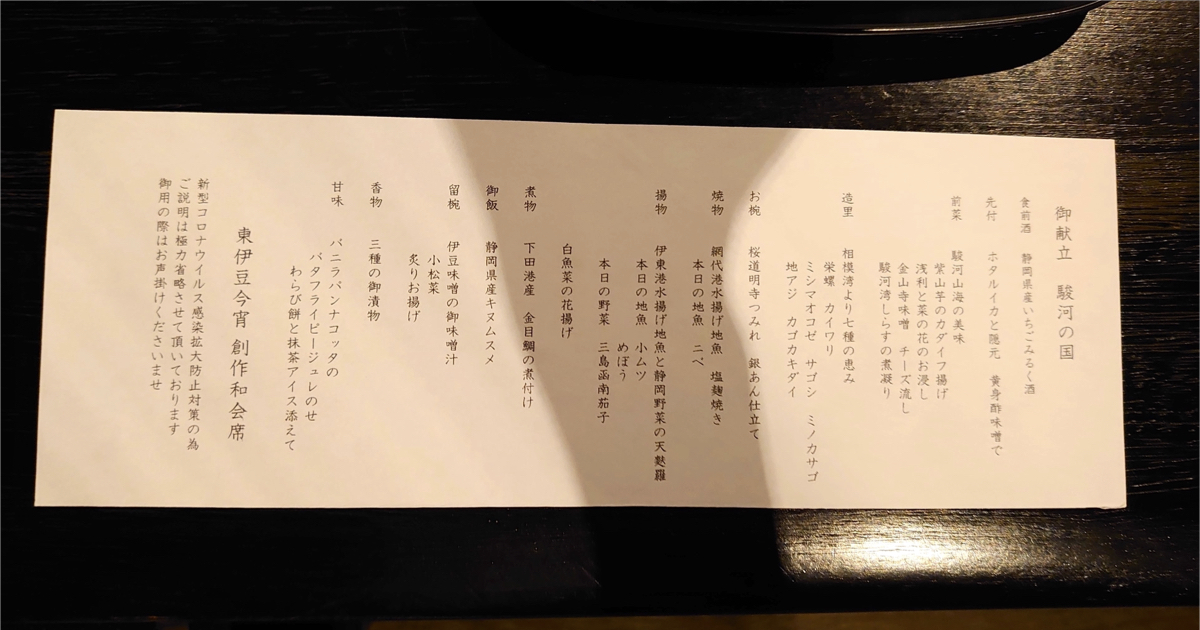 御献立 駿河の国
食前酒 静岡県産いちごみるく酒
先付 ホタルイカと隠元 黄身酢味噌で
前菜 駿河山海の美味
紫山芋のカダイフ揚げ
浅利と菜の花のお浸し
金山寺味噌 チーズ流し
駿河湾しらすの煮凝り
造里 相模湾より七種の恵み
栄螺 カイワリ
ミシマオコゼ サゴシ ミノカサゴ
地アジ カゴカキダイ
お椀 桜道明寺つみれ 銀あん仕立て
焼物 網代港水揚げ地魚 塩麹焼き
本日の地魚 ニベ
揚物 伊東港水揚げ地魚と静岡野菜の天麩羅
本日の地魚 小ムツ
めぼう
本日の野菜 三島函南茄子
白魚菜の花揚げ
煮物 下田港産 金目鯛の煮付け
御飯 静岡県産キヌムスメ
留椀 伊豆味噌の御味噌汁
小松菜
炙りお揚げ
香物 三種の御漬物
甘味 バニラパンナコッタの
バタフライピージュレのせ
わらび餅と抹茶アイス添えて
東伊豆今宵 創作和会席
新型コロナウイルス感染拡大防止対策の為
ご説明は極力省略させて頂いております
御用の際はお声掛けくださいませ